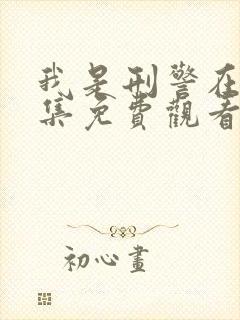 我是刑警在
集免費觀看
初心畫